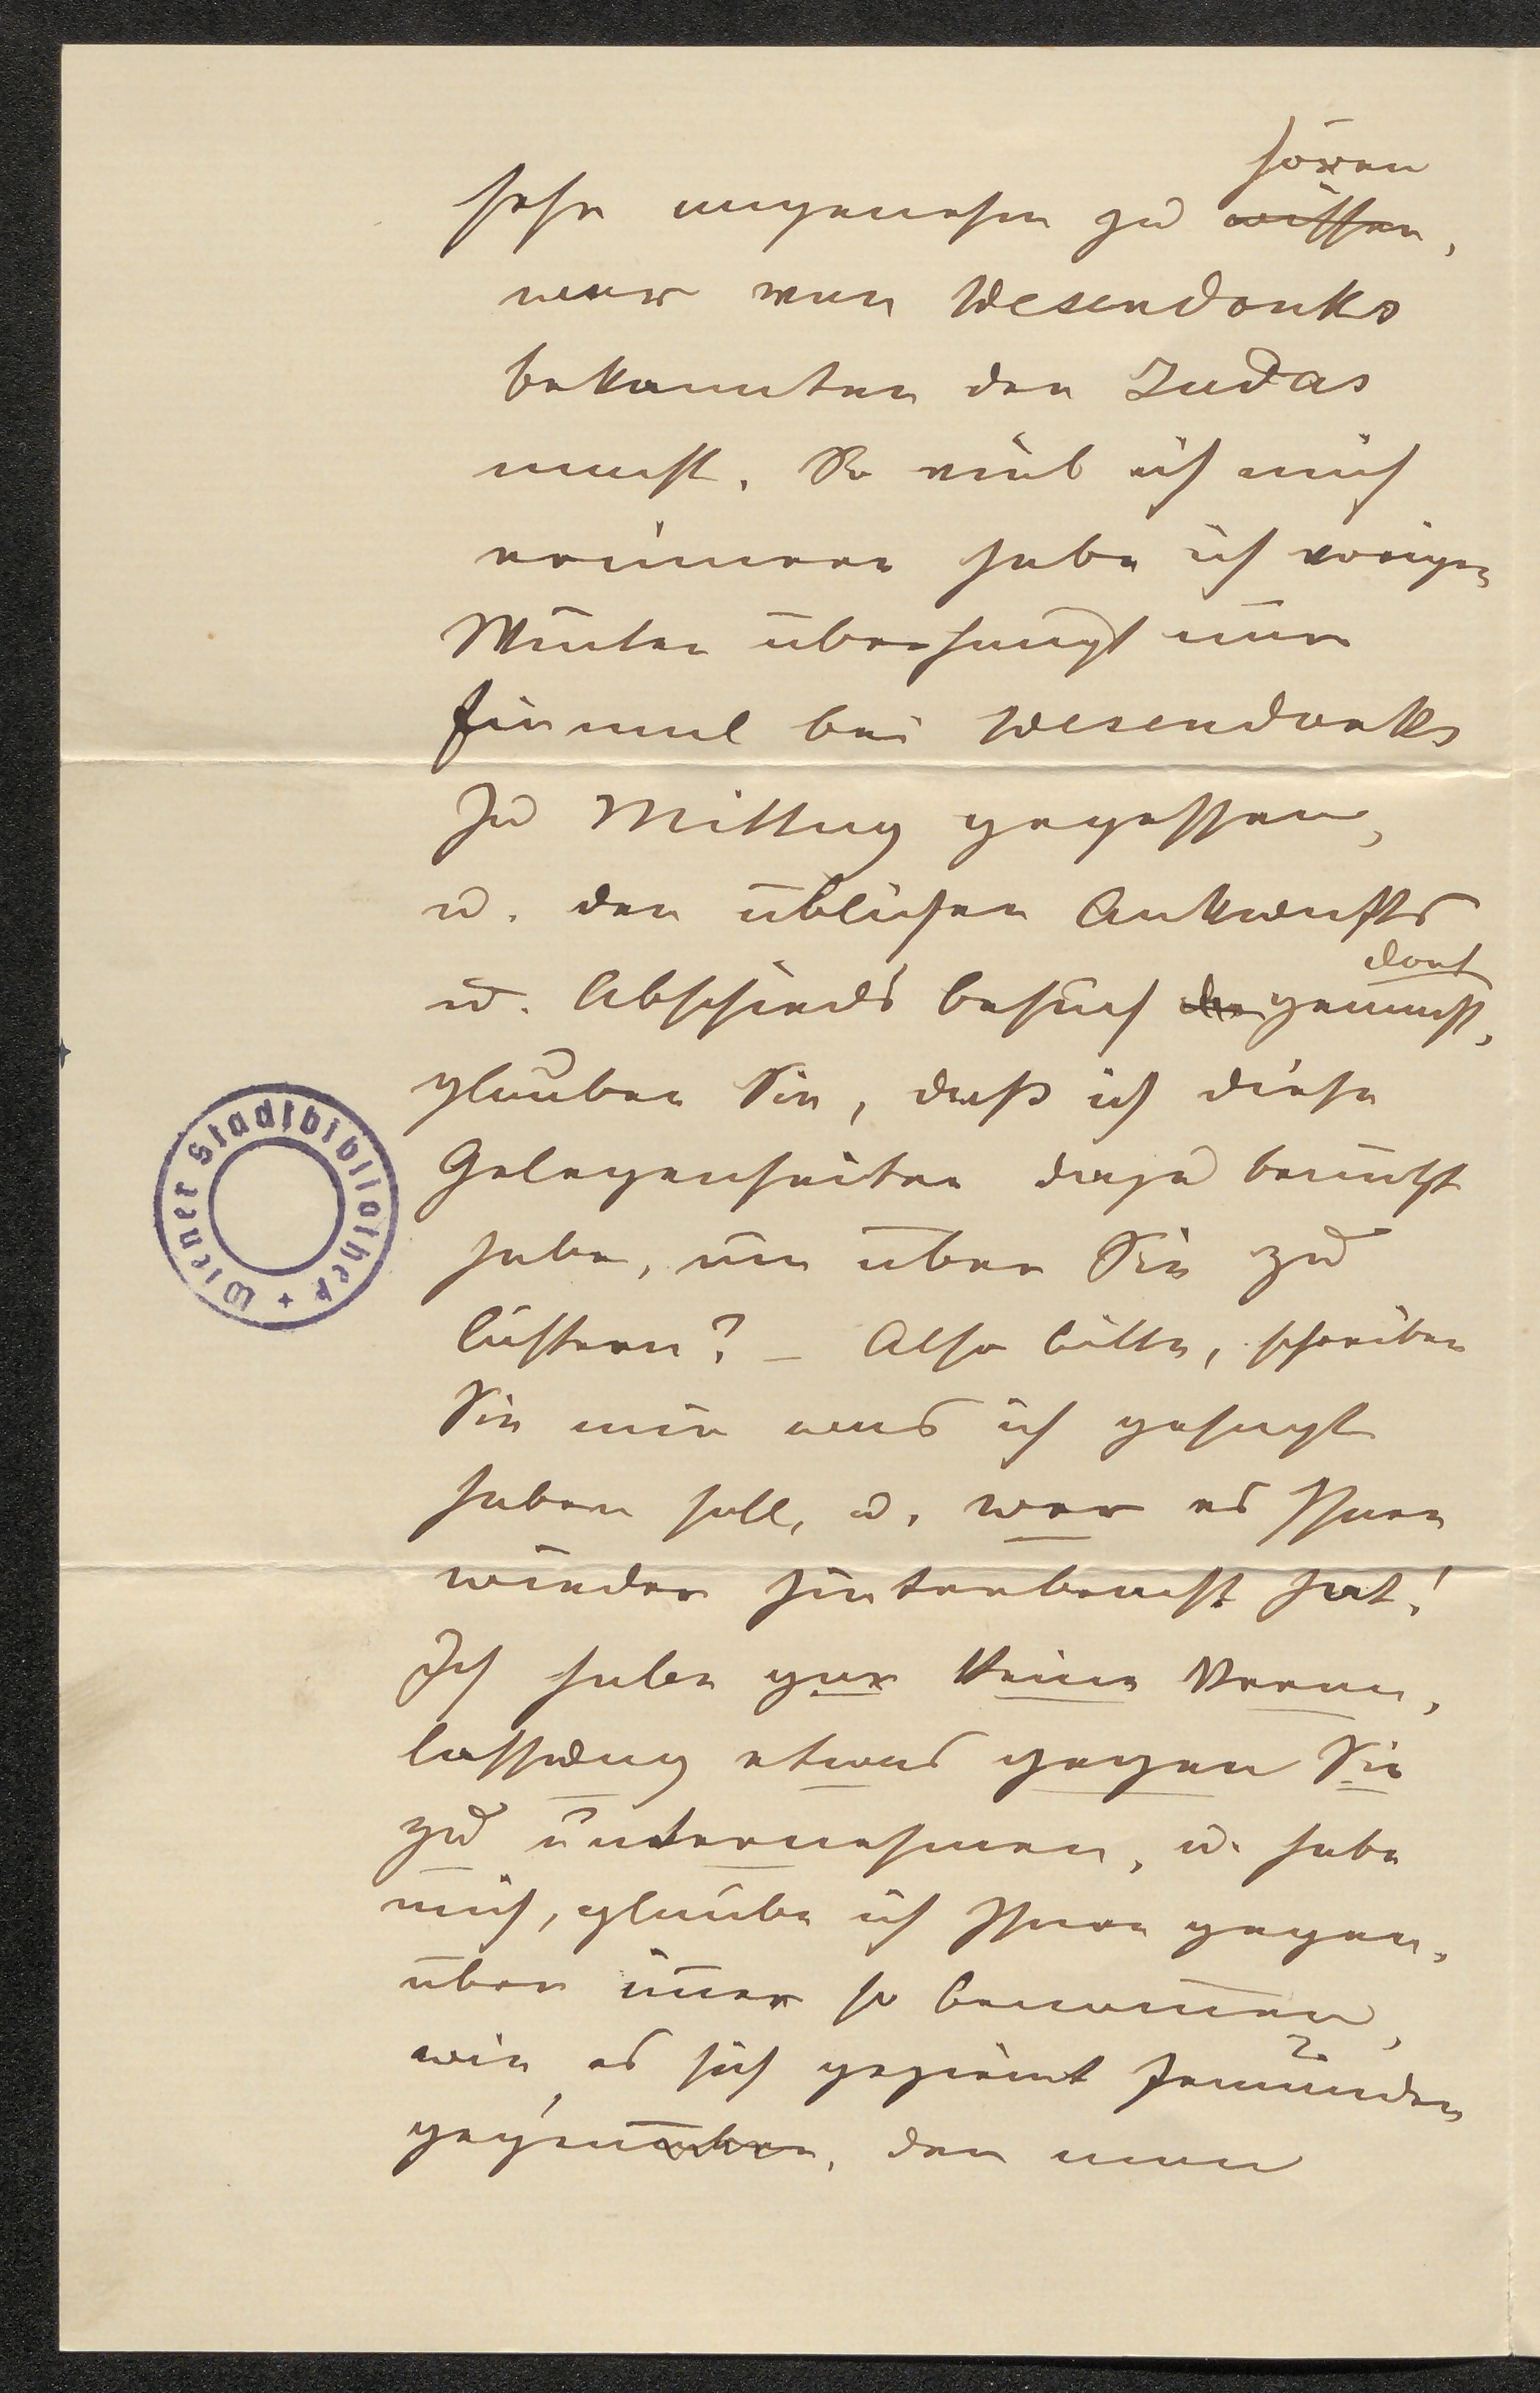 hören
sehr angenehm zu wissen,
wer von Wesendonks
bekannten den Judas
macht. So viel ich mich
erinnere habe ich vorigen
Winter überhaupt nur
Einmal bei Wesendonks
zu Mittag gegessen,
u. den üblichen Ankunfts
dort
u. Abschieds besuch de gemacht,
glauben Sie, daß ich diese
Gelegenheiten dazu benützt
habe, um über Sie zu
lästern? – Also bitte, schreiben
Sie mir was ich gesagt
haben soll, u. wer es Ihnen
wieder hinterbracht hat!
Ich habe gar keine Veran,
lassung etwas gegen Sie
zu unternehmen, u. habe
mich, glaube ich Ihnen gegen,
über im̅er so benom̅en,
wie es sich geziemt Jemanden
gegenüber, den man
Wiener Stadtbibliothek